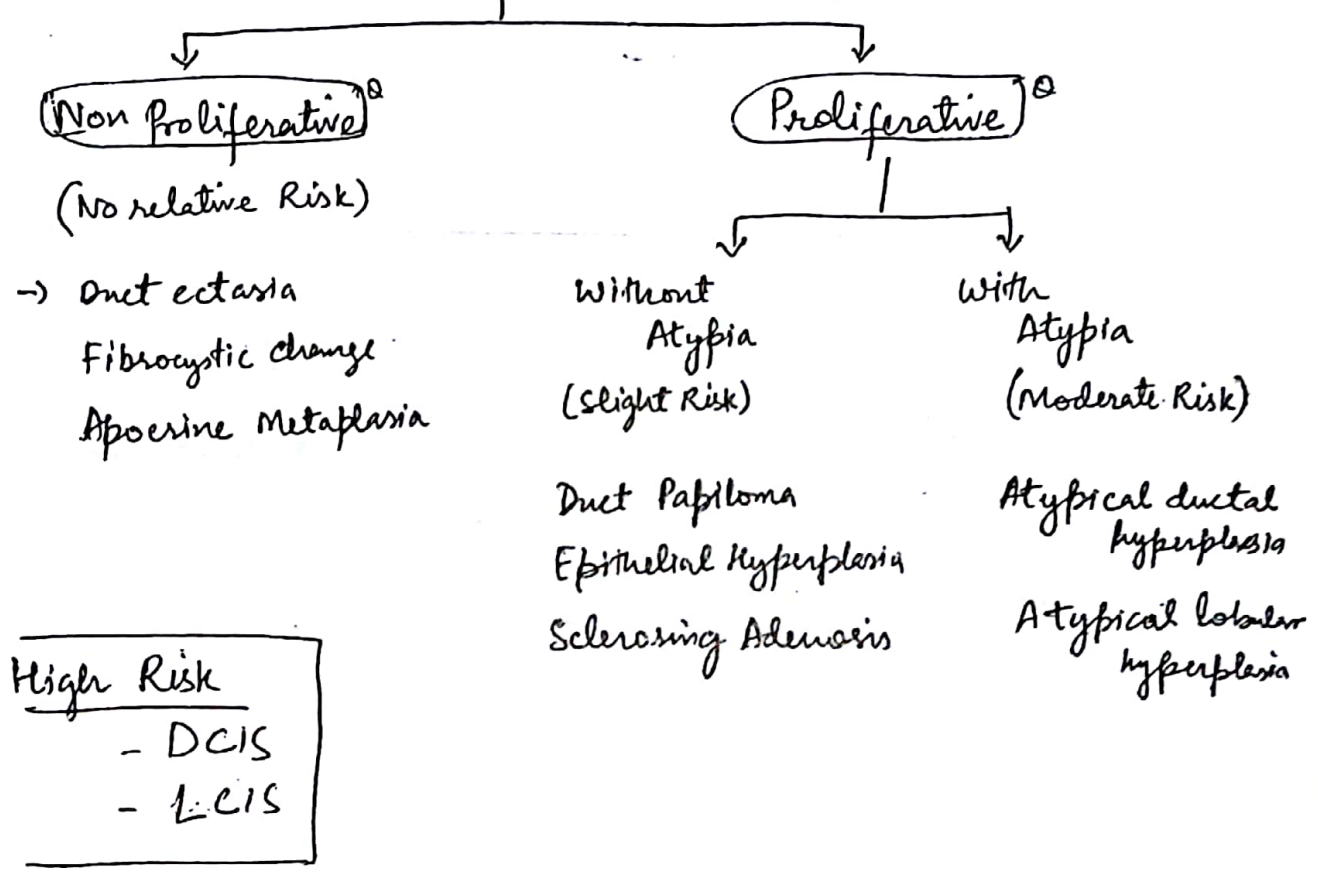 Non Proliferative Q
Proliferative Q
(No relative Risk)
→ Duct ectasia
Fibrocystic change
Apocrine Metaplasia
Without
Atypia
(Slight Risk)
Duct Papiloma
Epithelial Hyperplasia
Sclerosing Adenosis
With
Atypia
(Moderate Risk)
Atypical ductal
hyperplasia
Atypical lobular
hyperplasia
High Risk
- DCIS
- LCIS